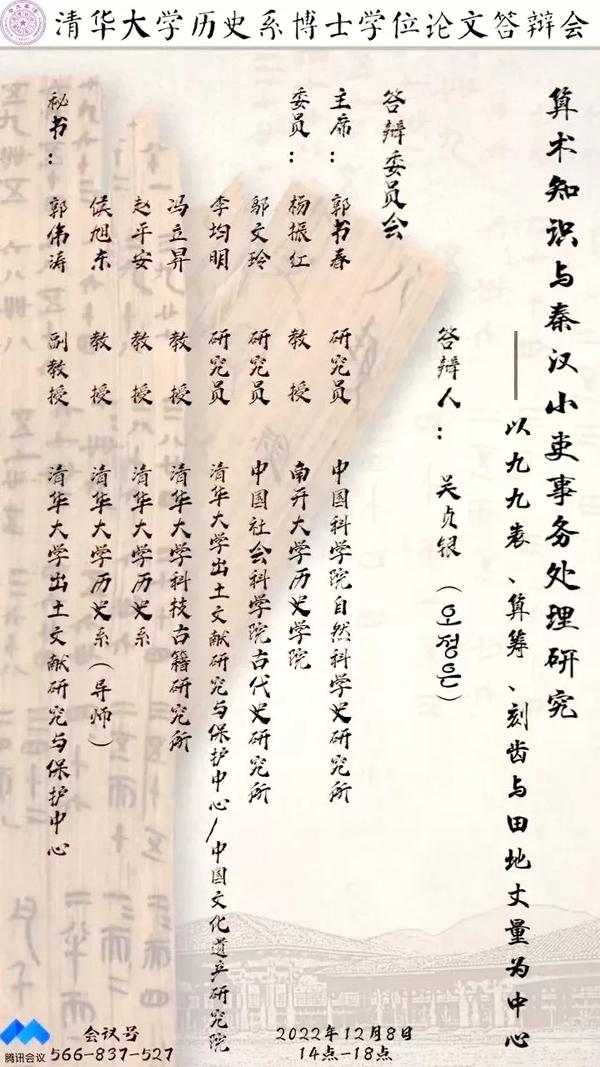 清华大学历史系博士学位论文答辩会
算术知识与秦汉小吏事务处理研究
——以九九表、算筹、刻齿与田地丈量为中心
答辩人：吴贞银（오정은）
答辩委员会
主席：郭书春 研究员 中国科学院自然科学史研究所
委员：杨振红 教授 南开大学历史学院
邬文玲 研究员 中国社会科学院古代史研究所
李均明 研究员 清华大学出土文献研究与保护中心/中国文化遗产研究院
冯立昇 教授 清华大学科技古籍研究所
赵平安 教授 清华大学历史系
侯旭东 教授 清华大学历史系（导师）
秘书：郭伟涛 副教授 清华大学出土文献研究与保护中心
腾讯会议
会议号
566-837-527
2022年12月8日
14点-18点